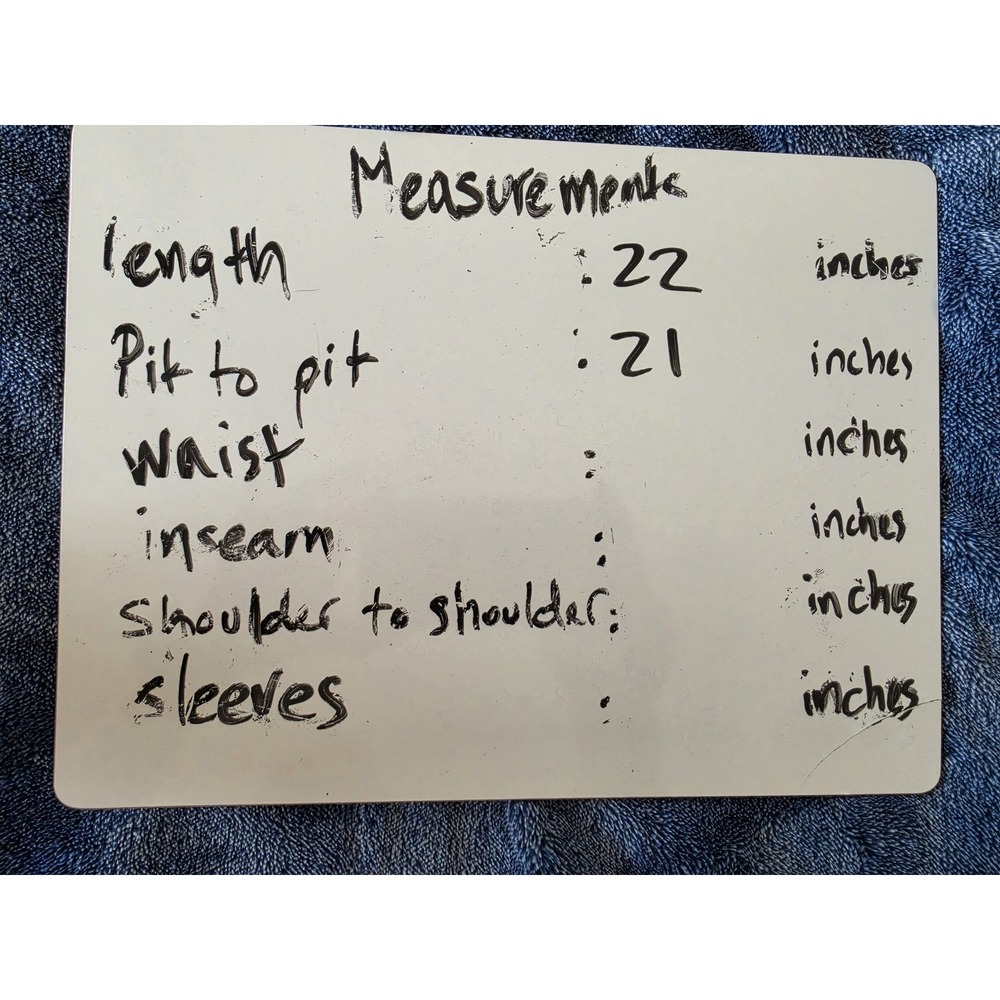 Measurements
length : 22 inches
Pit to pit : 21 inches
waist : inches
inseam : inches
shoulder to shoulder: inches
sleeves : inches